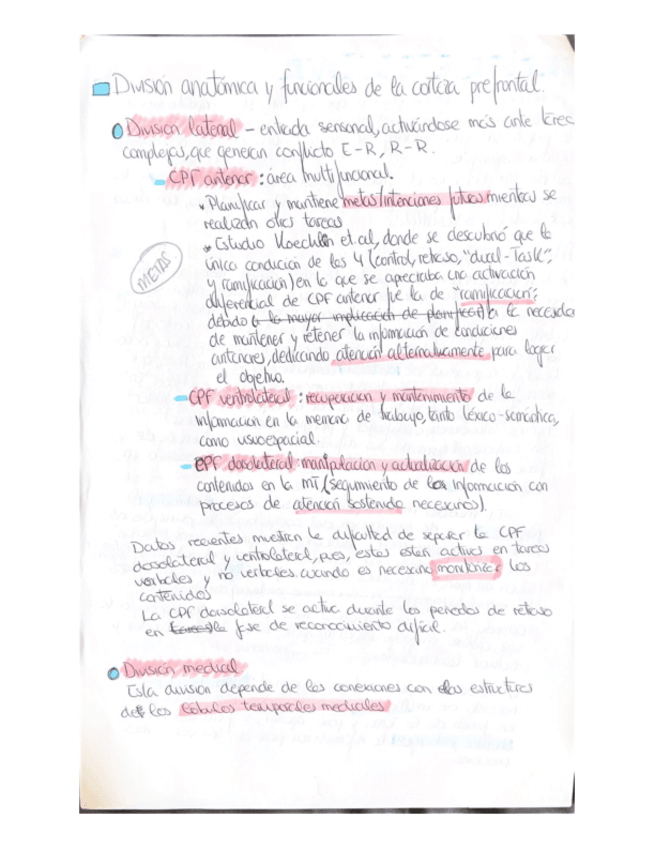 División anatómica y funcionales de la corteza prefrontal.
División lateral - entrada sensorial, activándose más ante tarea
complejas, que generan conflicto E-R, R-R.
CPF anterior: área multifuncional.
* Planificar y mantiene metas/intenciones futuras mientras se
realizan otras tareas
* Estudio Koechlin et al, donde se descubrió que la
única condición de las 4 (control, retraso, "dual-Task",
y ramificación) en la que se apreciaba una activación
diferencial de CPF anterior fue la de "ramificación",
debido a la mayor implicación de planificar) a la necesida
de mantener y retener la información de condiciones
anteriores, dedicando atención alternativamente para lograr
el objetivo.
METAS
CPF ventrolateral: recuperación y mantenimiento de la
información en la memoria de trabajo, tanto léxico-semántica,
como visuoespacial.
CPF dorsolateral: manipulación y actualización de los
contenidos en la MT (seguimiento de la información con
procesos de atención sostenida necesarios).
Datos recientes muestran la dificultad de separar la CPF
dorsolateral y ventrolateral, pues, estas están activas en tareas
verbales y no verbales cuando es necesario monitorizar los
contenidos
La CPF dorsolateral se activa durante los periodos de retraso
en tareas) la fase de reconocimiento difícil.
División medial
Esta división depende de las conexiones con las estructuras
de los lóbulos temporales mediales